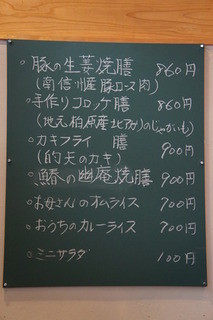 ○豚の生姜焼膳 860円
(南信州産 豚ロース肉)
○手作りコロッケ膳 860円
(地元柏原産北アカリのじゃがいも)
○カキフライ 膳 900円
(的矢のカキ)
○鰆の幽庵焼膳 900円
○お母さんのオムライス 700円
○おうちのカレーライス 700円
○ミニサラダ 100円